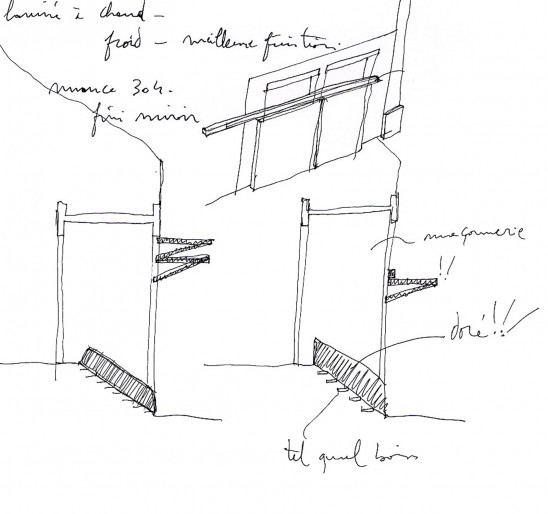 laminé à chaud -
froid - meilleure finition.
nuance 304.
fini miroir
maçonnerie
!!
doré!!
tel quel bois